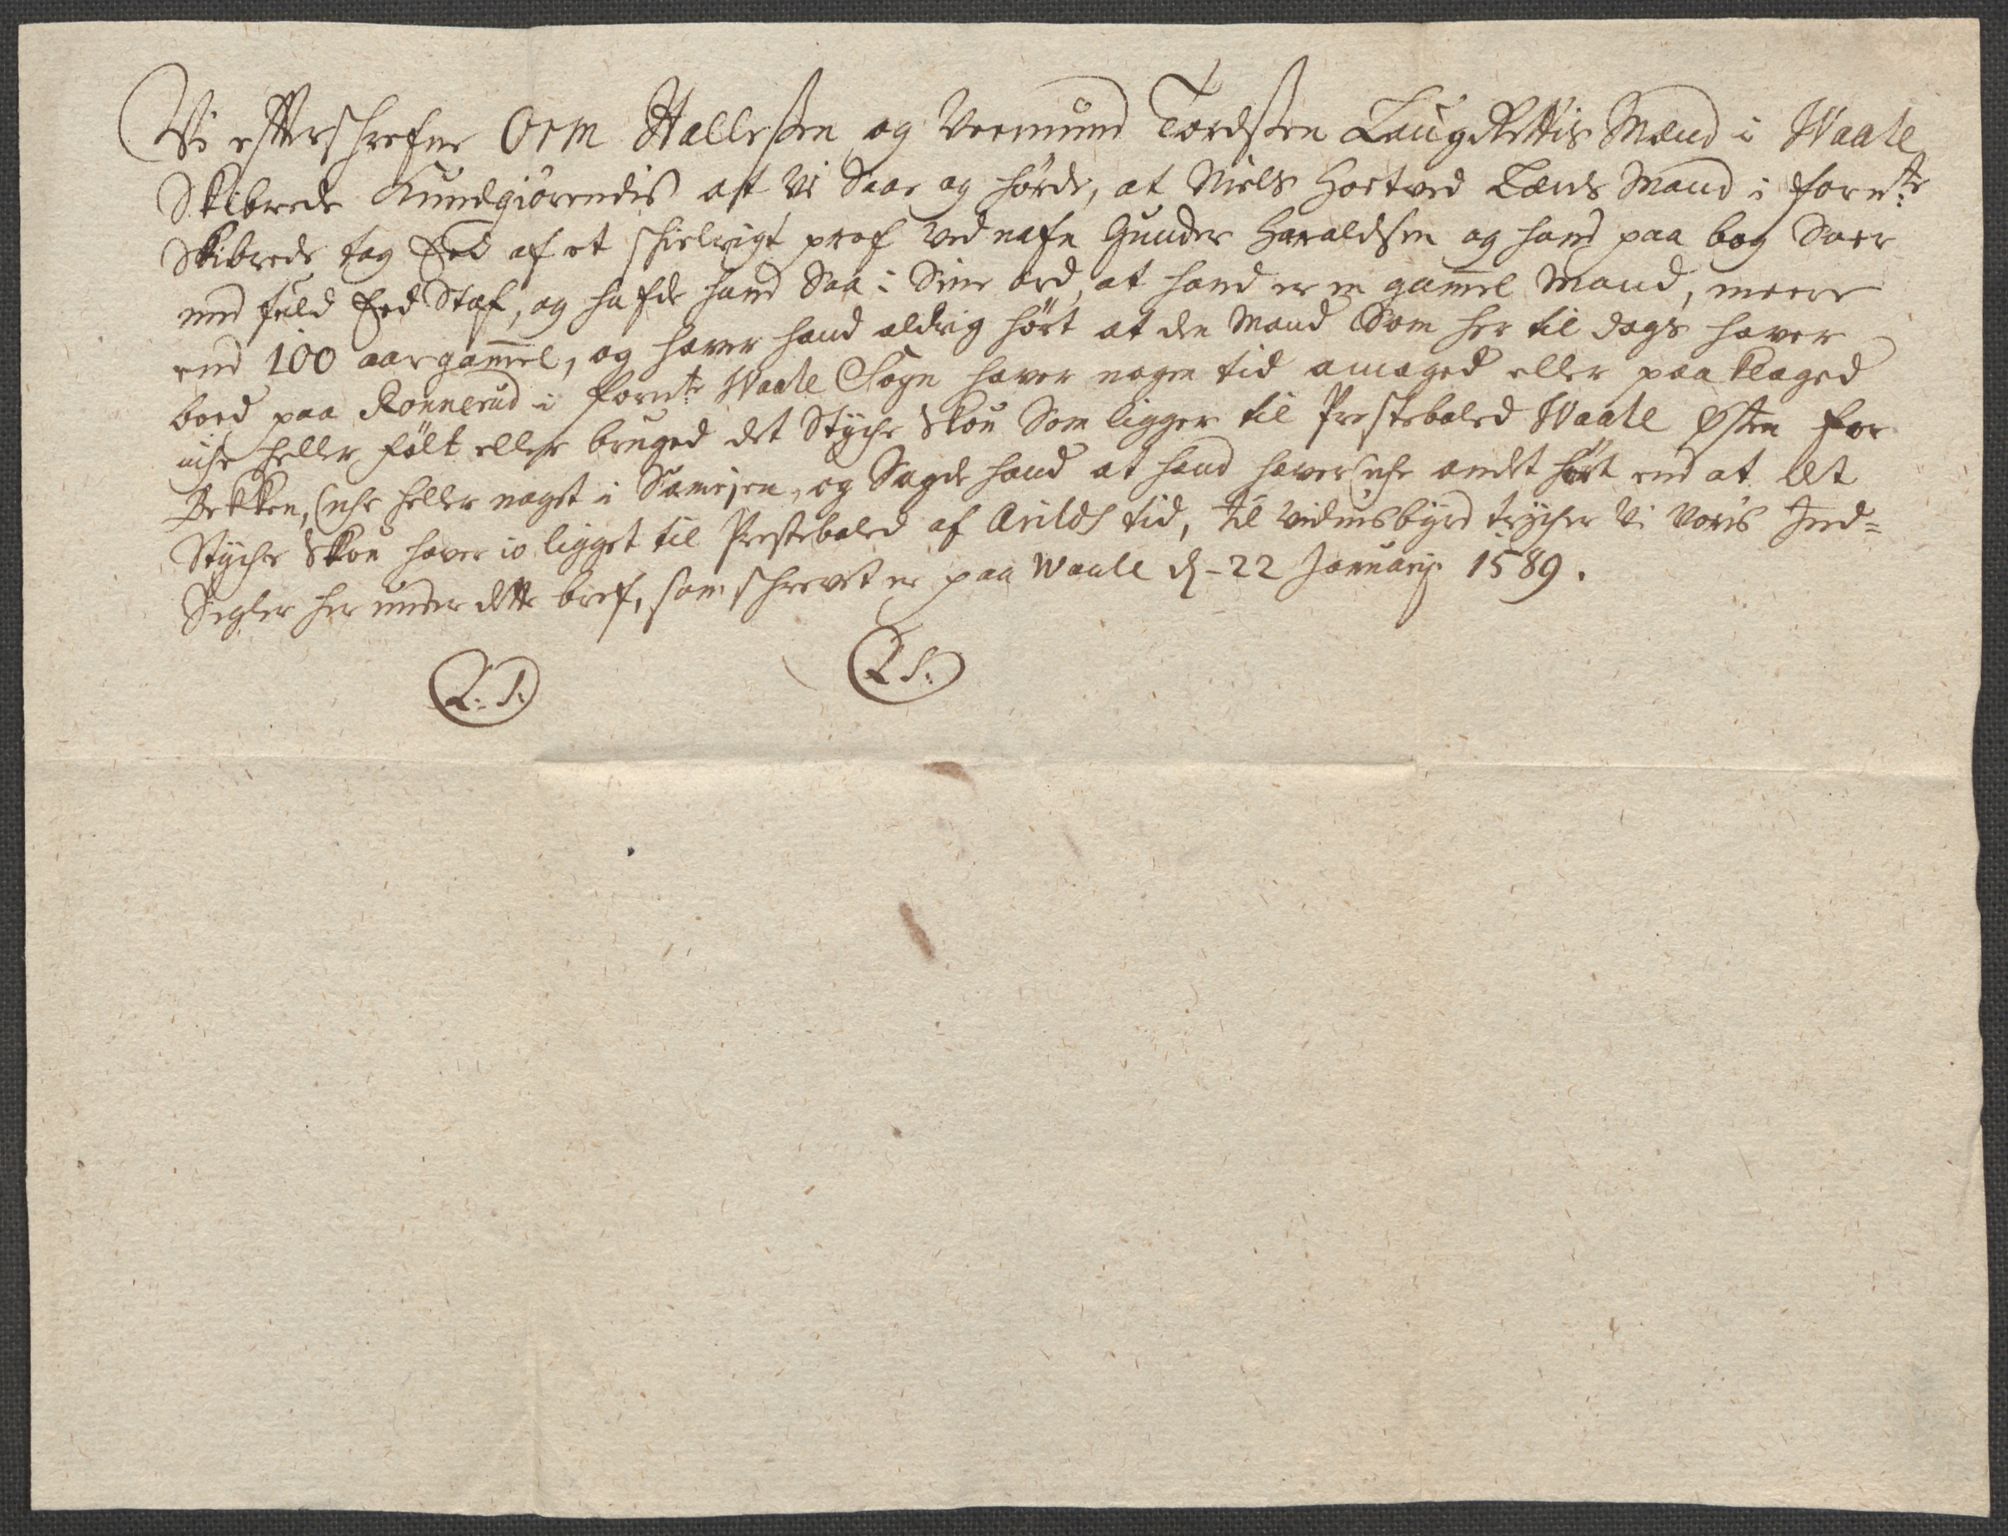 Vi effterschrefne Orm Hallessen og Vermund Tordssen LaugRettis Mænd i Waale
Skibrede Kundgiørendis at Vi Saae og hørde, at Niels Hortved Lænds Mand i Fornte
Skibrede tog Eed af et schielvigt prof ved nafn Gunder Haraldsen og hand paa bog Soer
med fuld Eed Staf, og hafde hand Saa i Sine ord, at hand er en gammel Mand, meere
end 100 aar gammel, og haver hand aldrig hørt at den Mand Som her til dags haver
boed paa Ronnerud i Fornte Waale Sogn haver nogen tid amaged eller paaklaged
iche heller fält eller bruged det Styche Skou Som ligger til Presteboled Waale Østen for
Bekken, iche heller noget i Sameien, og Sagde hand at hand haver iche andet hørt end at det
Styche Skou haver io ligget til Presteboled af Arilds tid, til vidnisbyrd trycher Vi voris Ind=
Segler her under dette bref, som schrevet er paa Waale d. 22 Januarij 1589.
L. S. L S.